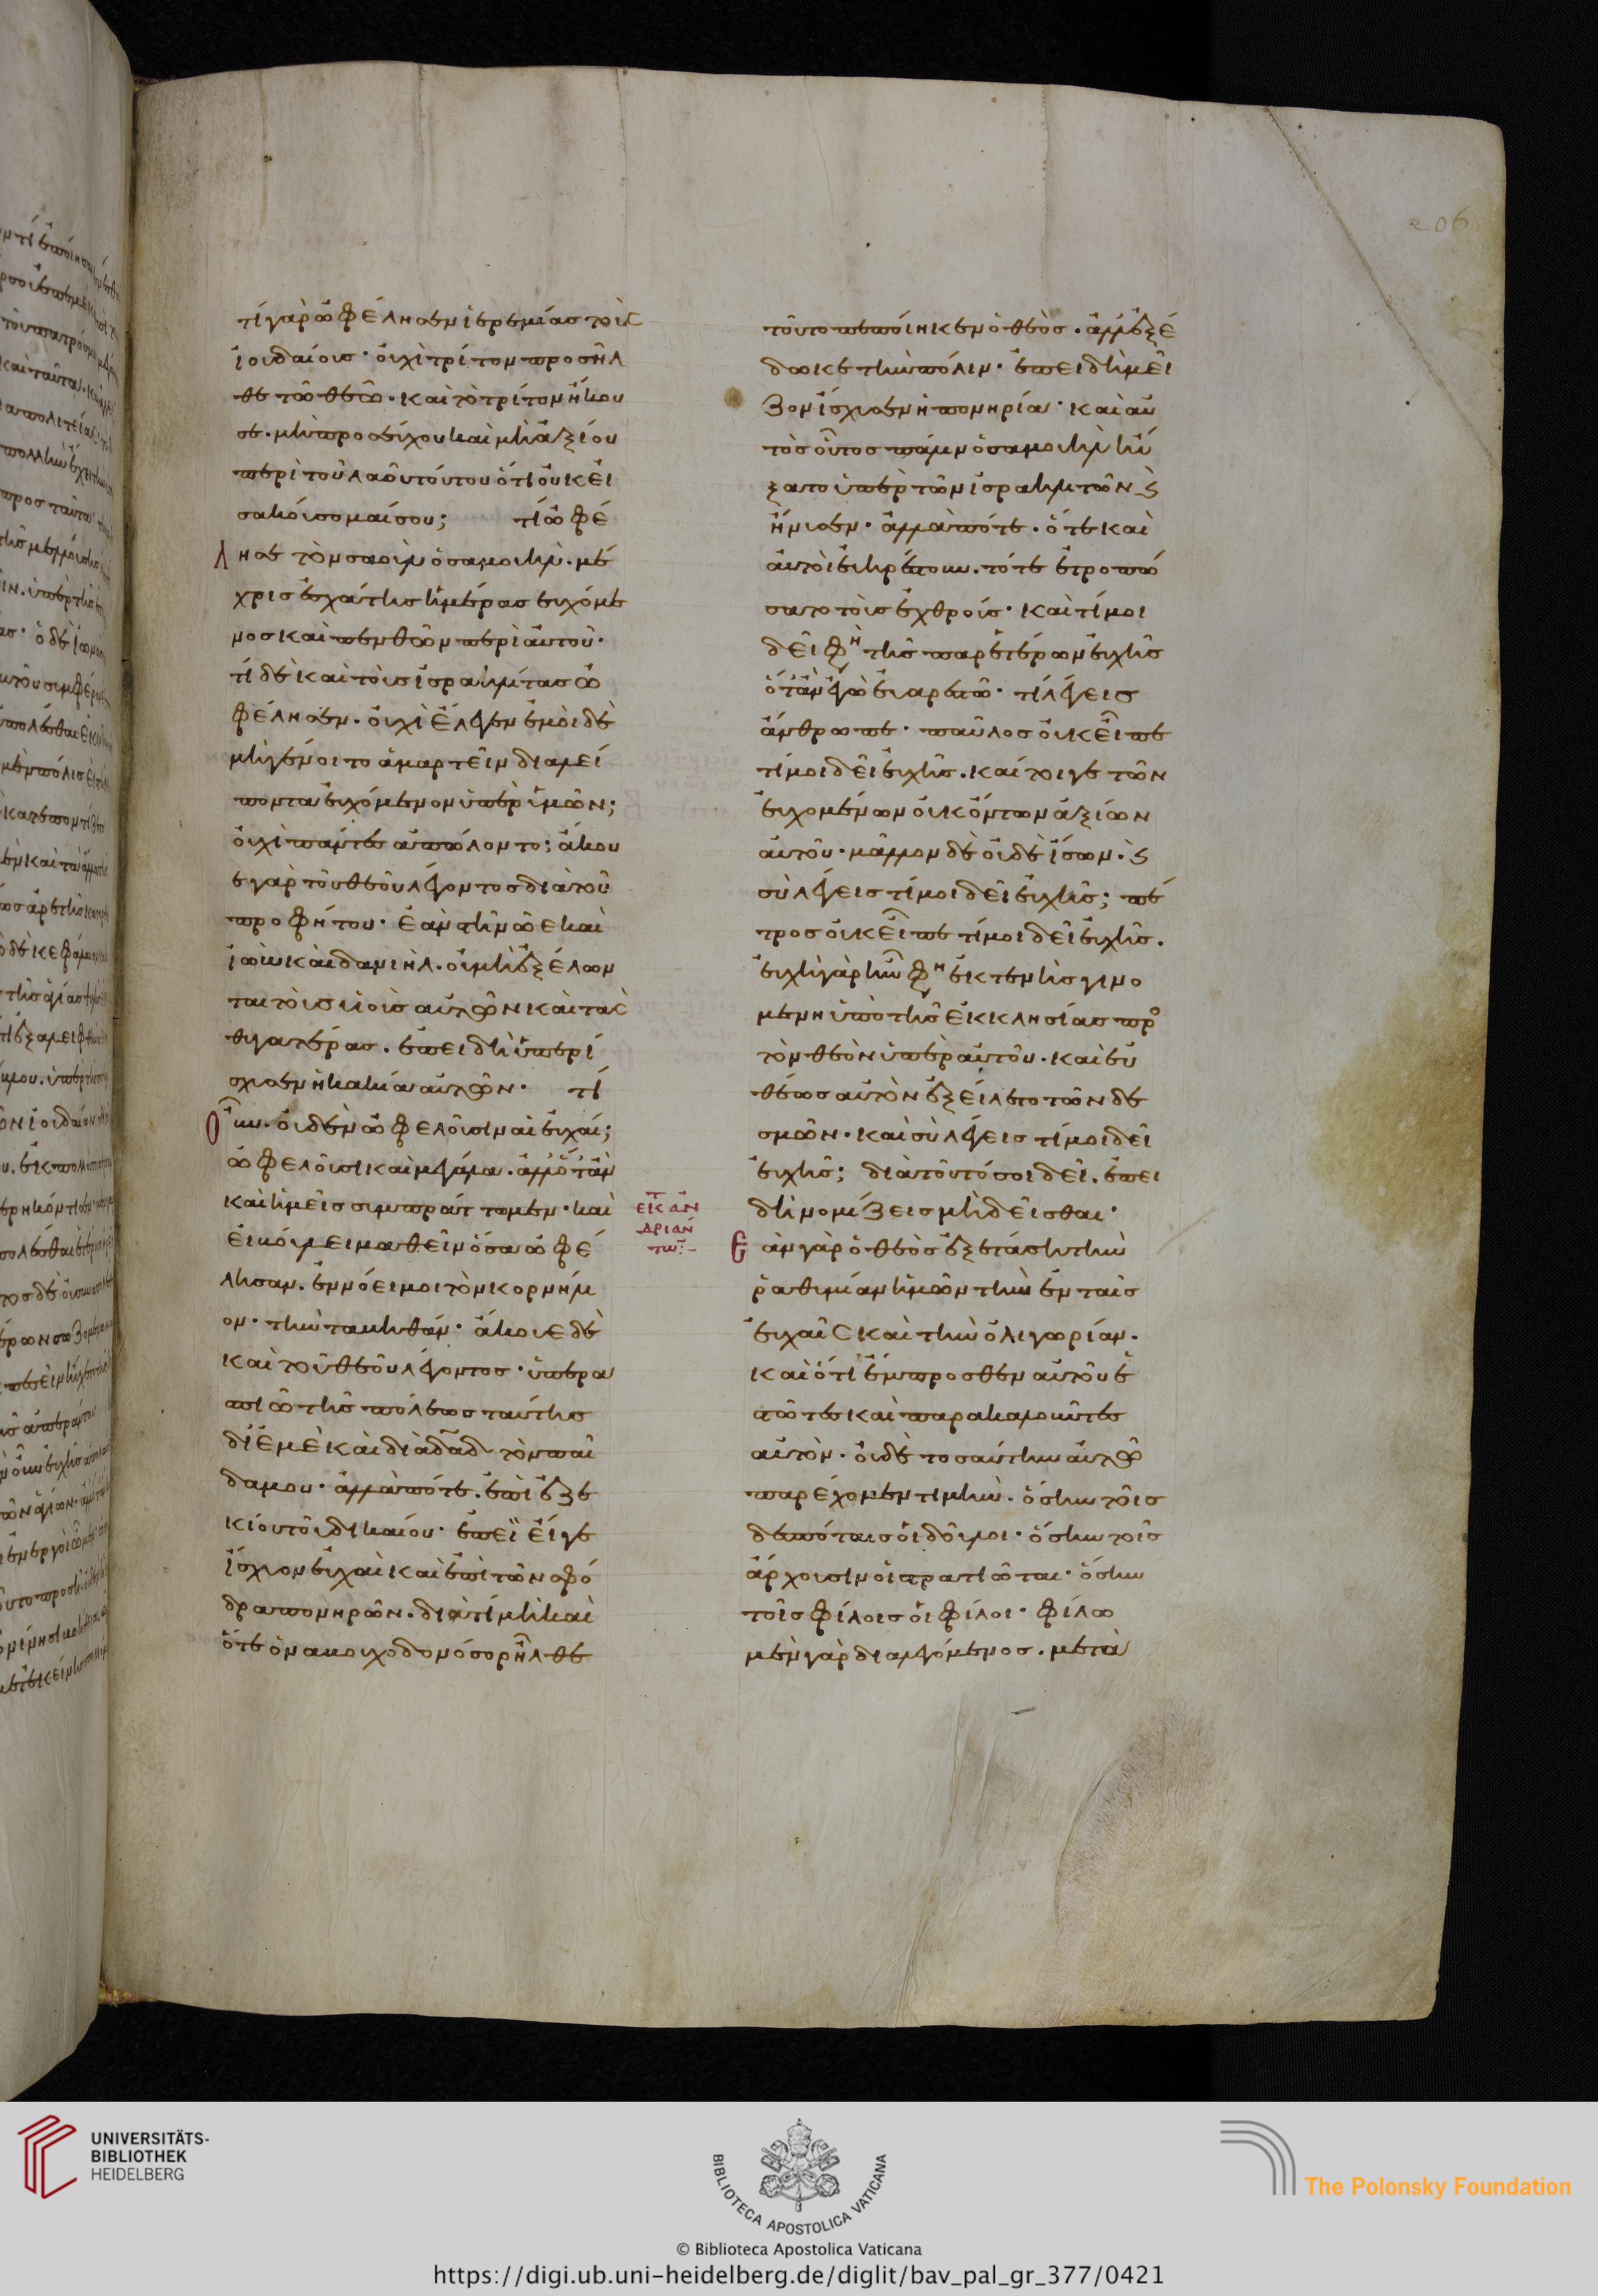 τί γὰρ ὠφέλησεν ἱερεμίας τοὺς
ἰουδαίους· οὐχὶ τρίτον προσῆλ
θε τῶ θεῶ· καὶ τὸ τρίτον ἤκου
σε· μὴ προσεύχου καὶ μὴ ἀξίου
περὶ τοῦ λαοῦ τούτου ὅτι οὐκ εἰ
σακούσομαί σου; τί ὠφέ
λησε τὸν σαοὺλ ὁ σαμουὴλ· μέ
χρις ἐσχάτης ἡμέρας εὐχόμε
νος καὶ πενθῶν περὶ αὐτοῦ·
τί δὲ καὶ τοὺς ἰσραηλίτας ὠ
φέλησεν· οὐχὶ ἔλεγεν ἐμοὶ δὲ
μὴ γένοιτο ἁμαρτεῖν διαλεί
ποντα εὐχόμενον ὑπὲρ ὑμῶν;
οὐχὶ πάντες ἀπώλοντο; ἄκου
ε γὰρ τοῦ θεοῦ λέγοντος διὰ τοῦ
προφήτου· ἐὰν στῆ νῶε καὶ
ἰὼβ καὶ δανιὴλ· οὐ μὴ ἐξέλων
ται τοὺς υἱοὺς αὐτῶν καὶ τὰς
θυγατέρας· ἐπειδὴ ὑπερί
σχυσεν ἡ κακία αὐτῶν· τί
οὖν· οὐδὲν ὠφελοῦσιν αἱ εὐχαί;
ὠφελοῦσι καὶ μεγάλα· ἀλλ' ὅταν
καὶ ἡμεῖς συμπράττωμεν· καὶ
εἰ βούλει μαθεῖν ὅσα ὠφέ
λησαν· ἐννόει μοι τὸν κορνήλι
ον· τὴν ταβιθάν· ἄκουε δὲ
καὶ τοῦ θεοῦ λέγοντος· ὑπερα
σπιῶ τῆς πόλεως ταύτης
δι' ἐμὲ καὶ διὰ δᾱδ τὸν παῖ
δά μου· ἀλλὰ πότε· ἐπὶ ἐζε
κίου τοῦ δικαίου· ἐπεὶ εἴ γε
ἴσχυον εὐχαὶ καὶ ἐπὶ τῶν σφό
δρα πονηρῶν· διὰ τί μὴ καὶ
ὅτε ὁ ναβουχοδονόσορ ἦλθε
τοῦτο πεποίηκεν ὁ θεὸς· ἀλλ' ἐξέ
δωκε τὴν πόλιν· ἐπειδὴ μεῖ
ζον ἴσχυσεν ἡ πονηρία· καὶ αὐ
τὸς οὗτος πάλιν ὁ σαμουὴλ ηὔ
ξατο ὑπὲρ τῶν ἰσραηλιτῶν ϗ
ἤνυσεν· ἀλλὰ πότε· ὅτε καὶ
αὐτοὶ εὐηρέστουν· τότε ἐτροπώ
σατο τοὺς ἐχθρούς· καὶ τί μοι
δεῖ φη τῆς παρ' ἑτέρων εὐχῆς
ὅταν ἐγὼ εὐαρεστῶ· τί λέγεις
ἄνθρωπε· παῦλος οὐκ εἶπε
τί μοι δεῖ εὐχῆς· καίτοιγε τῶν
εὐχομένων οὐκ ὄντων ἀξίων
αὐτοῦ· μᾶλλον δὲ οὐδὲ ἴσων· ϗ
σὺ λέγεις τί μοι δεῖ εὐχῆς; πέ
τρος οὐκ εἶπε τί μοι δεῖ εὐχῆς·
εὐχὴ γὰρ ἦν φη ἐκτενὴς γινο
μένη ὑπὸ τῆς ἐκκλησίας πρὸ
τὸν θεὸν ὑπὲρ αὐτοῦ· καὶ εὐ
θέως αὐτὸν ἐξείλετο τῶν δε
σμῶν· καὶ σὺ λέγεις τί μοι δεῖ
εὐχῆς; διὰ τοῦτό σοι δεῖ· ἐπει
δὴ νομίζεις μὴ δεῖσθαι·
εἰκ ἀν
δριάν
τω:~
Ἐὰν γὰρ ὁ θεὸς ἐξετάση τὴν
ῥαθυμίαν ἡμῶν τὴν ἐν ταῖς
εὐχαῖς καὶ τὴν ὀλιγωρίαν·
καὶ ὅτι ἔμπροσθεν αὐτοῦ ἑ
στῶτες καὶ παρακαλοῦντες
αὐτὸν· οὐδὲ τοσαύτην αὐτῶ
παρέχομεν τιμὴν· ὅσην τοῖς
δεσπόταις οἱ δοῦλοι· ὅσην τοῖς
ἄρχουσιν οἱ στρατιῶται· ὅσην
τοῖς φίλοις οἱ φίλοι· φίλω
μὲν γὰρ διαλεγόμενος· μετὰ
206
UNIVERSITÄTS-
BIBLIOTHEK
HEIDELBERG
BIBLIOTECA APOSTOLICA VATICANA
The Polonsky Foundation
© Biblioteca Apostolica Vaticana
https://digi.ub.uni-heidelberg.de/diglit/bav_pal_gr_377/0421